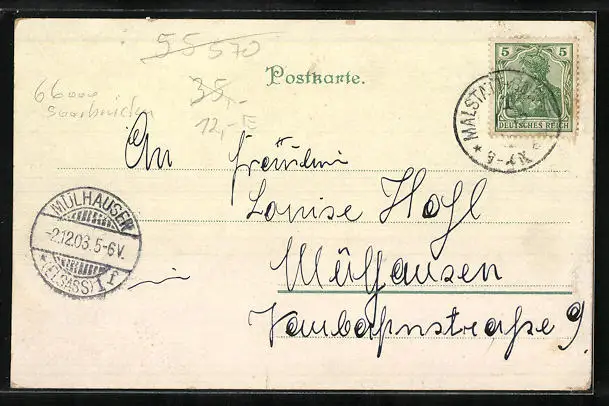 55 570
Postkarte.
35,-
12,-
66000
Saarbrücken
5 5
DEUTSCHES REICH
MALSTATT
An Fräulein
Louise Hogl
MÜLHAUSEN
-2.12.03.5-6V.
*(ELSASS)1f
in
Mülhausen
9.